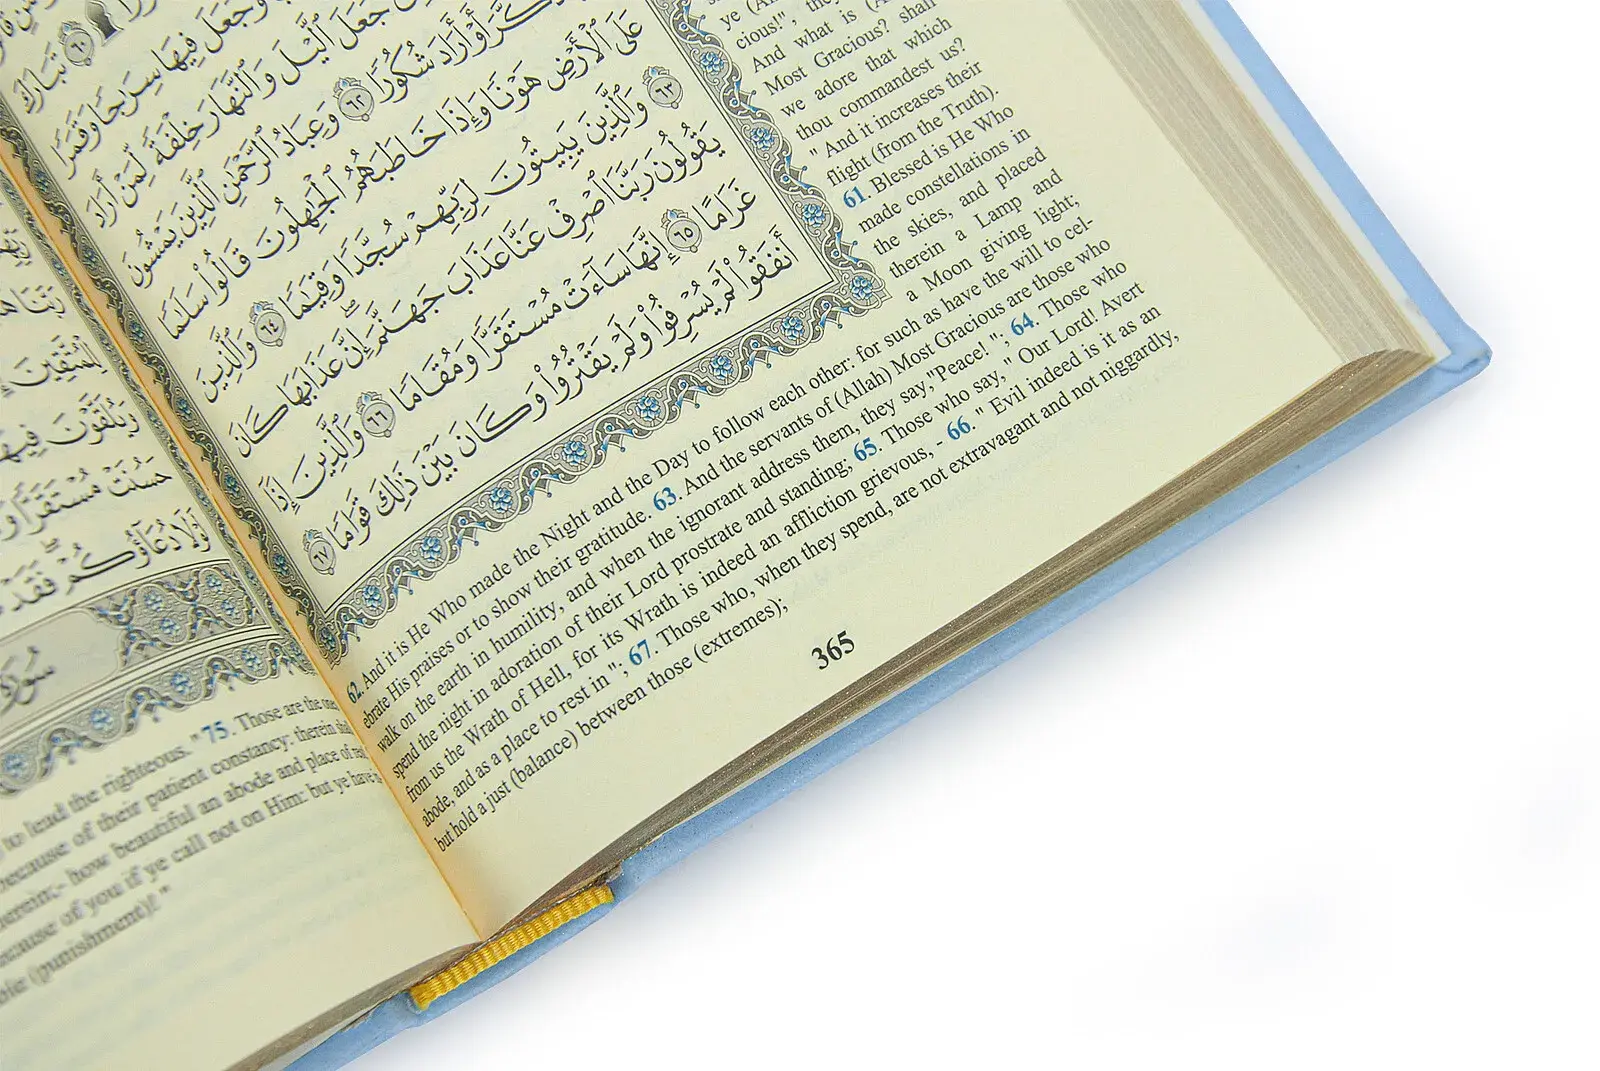 تَبَارَكَ
وَجَعَلَ فِيهَا سِرَاجًا وَقَمَرًا
جَعَلَ ٱلَّيْلَ وَٱلنَّهَارَ خِلْفَةً لِّمَنْ أَرَادَ
أَوْ أَرَادَ شُكُورًا ٦٢ وَعِبَادُ ٱلرَّحْمَٰنِ ٱلَّذِينَ يَمْشُونَ
عَلَى ٱلْأَرْضِ هَوْنًا وَإِذَا خَاطَبَهُمُ ٱلْجَٰهِلُونَ قَالُوا۟ سَلَٰمًا
٦٣ وَٱلَّذِينَ يَبِيتُونَ لِرَبِّهِمْ سُجَّدًا وَقِيَٰمًا ٦٤ وَٱلَّذِينَ
يَقُولُونَ رَبَّنَا ٱصْرِفْ عَنَّا عَذَابَ جَهَنَّمَ إِنَّ عَذَابَهَا كَانَ
غَرَامًا ٦٥ إِنَّهَا سَآءَتْ مُسْتَقَرًّا وَمُقَامًا ٦٦ وَٱلَّذِينَ إِذَآ
أَنفَقُوا۟ لَمْ يُسْرِفُوا۟ وَلَمْ يَقْتُرُوا۟ وَكَانَ بَيْنَ ذَٰلِكَ قَوَامًا ٦٧
cious!", they
And what is
Most Gracious? shall
we adore that which
thou commandest us?
" And it increases their
flight (from the Truth).
61. Blessed is He Who
made constellations in
the skies, and placed
therein a Lamp and
a Moon giving light;
62. And it is He Who made the Night and the Day to follow each other: for such as have the will to cel-
ebrate His praises or to show their gratitude. 63. And the servants of (Allah) Most Gracious are those who
walk on the earth in humility, and when the ignorant address them, they say,"Peace! "; 64. Those who
spend the night in adoration of their Lord prostrate and standing; 65. Those who say, " Our Lord! Avert
from us the Wrath of Hell, for its Wrath is indeed an affliction grievous, - 66. " Evil indeed is it as an
abode, and as a place to rest in "; 67. Those who, when they spend, are not extravagant and not niggardly,
but hold a just (balance) between those (extremes);
365
حَسُنَتْ مُسْتَقَرًّا
لَوْلَا دُعَآؤُكُمْ فَقَدْ
سُورَة
to lead the righteous. " 75. Those are the
because of their patient constancy: therein
therein;- how beautiful an abode and place of
because of you if ye call not on Him: but ye have
(punishment)! "